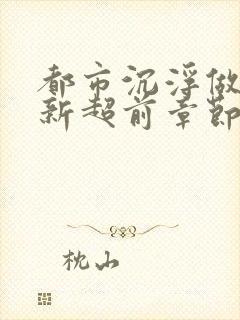 都市沉浮做
新超前章節
枕山